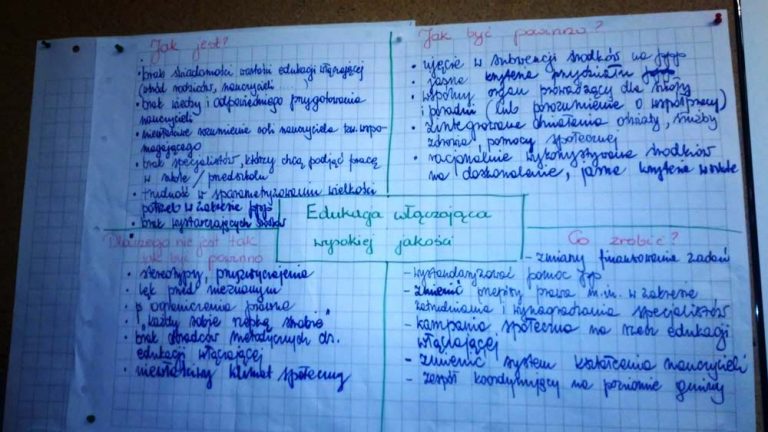 Jak jest?
• brak świadomości wartości edukacji włączającej
(wśród rodziców, nauczycieli...
• brak wiedzy i odpowiedniego przygotowania
nauczycieli
• niewłaściwe rozumienie roli nauczyciela tzw. wspo-
magającego
• brak specjalistów, którzy chcą podjąć pracę
w szkole / przedszkolu
• trudność w sparametryzowaniu wielkości
potrzeb w zakresie ppp
• brak wystarczających środków
Jak być powinno?
• ujęcie w subwencji środków na ppp
• jasne kryteria przydziału
• wspólny organ prowadzący dla szkoły
i poradni (lub porozumienie o współpracy)
• zintegrowane działania oświaty, służby
zdrowia, pomocy społecznej
• racjonalnie wykorzystywanie środków
na doskonalenie, jasne kryteria
Edukacja włączająca
wysokiej jakości
Dlaczego nie jest tak
jak być powinno
• stereotypy, przyzwyczajenia
• lęk przed nieznanym
• ograniczenia prawne
• "każdy sobie rzepkę skrobie"
• brak doradców metodycznych ds.
edukacji włączającej
• niewłaściwy klimat społeczny
Co zrobić?
- zmiany finansowania zadań
- wystandaryzować pomoc ppp
- zmienić przepisy prawa m.in. w zakresie
zatrudniania i wynagradzania specjalistów
- kampania społeczna na rzecz edukacji
włączającej
- zmienić system kształcenia nauczycieli
- zespół koordynujący na poziomie gminy